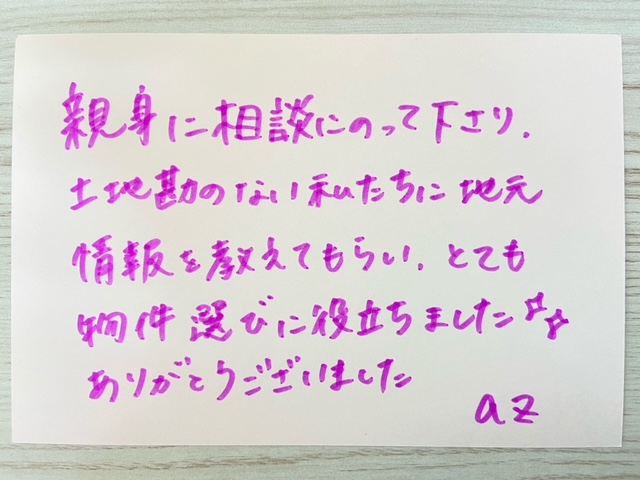 親身に相談にのって下さり、
土地勘のない私たちに地元
情報を教えてもらい、とても
物件選びに役立ちました✨
ありがとうございました
az